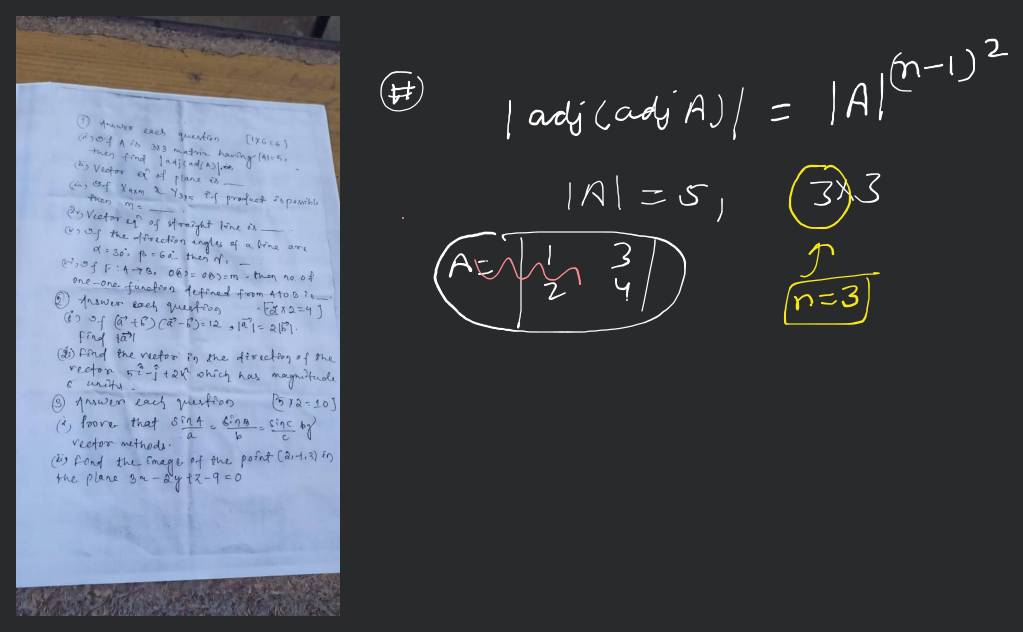 ① Answer each question [1X6=6]
(i) If A is 3x3 matrix having |A|=5,
then find |adj(adj A)|
(ii) Vector eqn of plane is __
(iii) If X4xm & Y3x5 if product is possible
then m = __
(iv) Vector eqn of straight line is __
(v) If the direction angles of a line are
α = 30°, β = 60° then
(vi) If F: A→B, O(A) = O(B) = m - then no. of
one-one function defined from A to B is __
② Answer each question [2x2=4]
(i) If (a⃗+b⃗)(a⃗-b⃗)=12, |a⃗|=2|b⃗|.
find |a⃗|
(ii) Find the vector in the direction of the
vector 5î-ĵ+2k̂ which has magnitude
units.
③ Answer each question [5x2=10]
(i) Prove that sinA/a = sinB/b = sinC/c by
vector methods.
(ii) Find the image of the point (2,-1,3) in
the plane 3x-2y+z-9=0
#
|adj(adj A)| = |A|^(n-1)^2
|A| = 5, 3x3
A= | 1 3
2 4 |
n=3